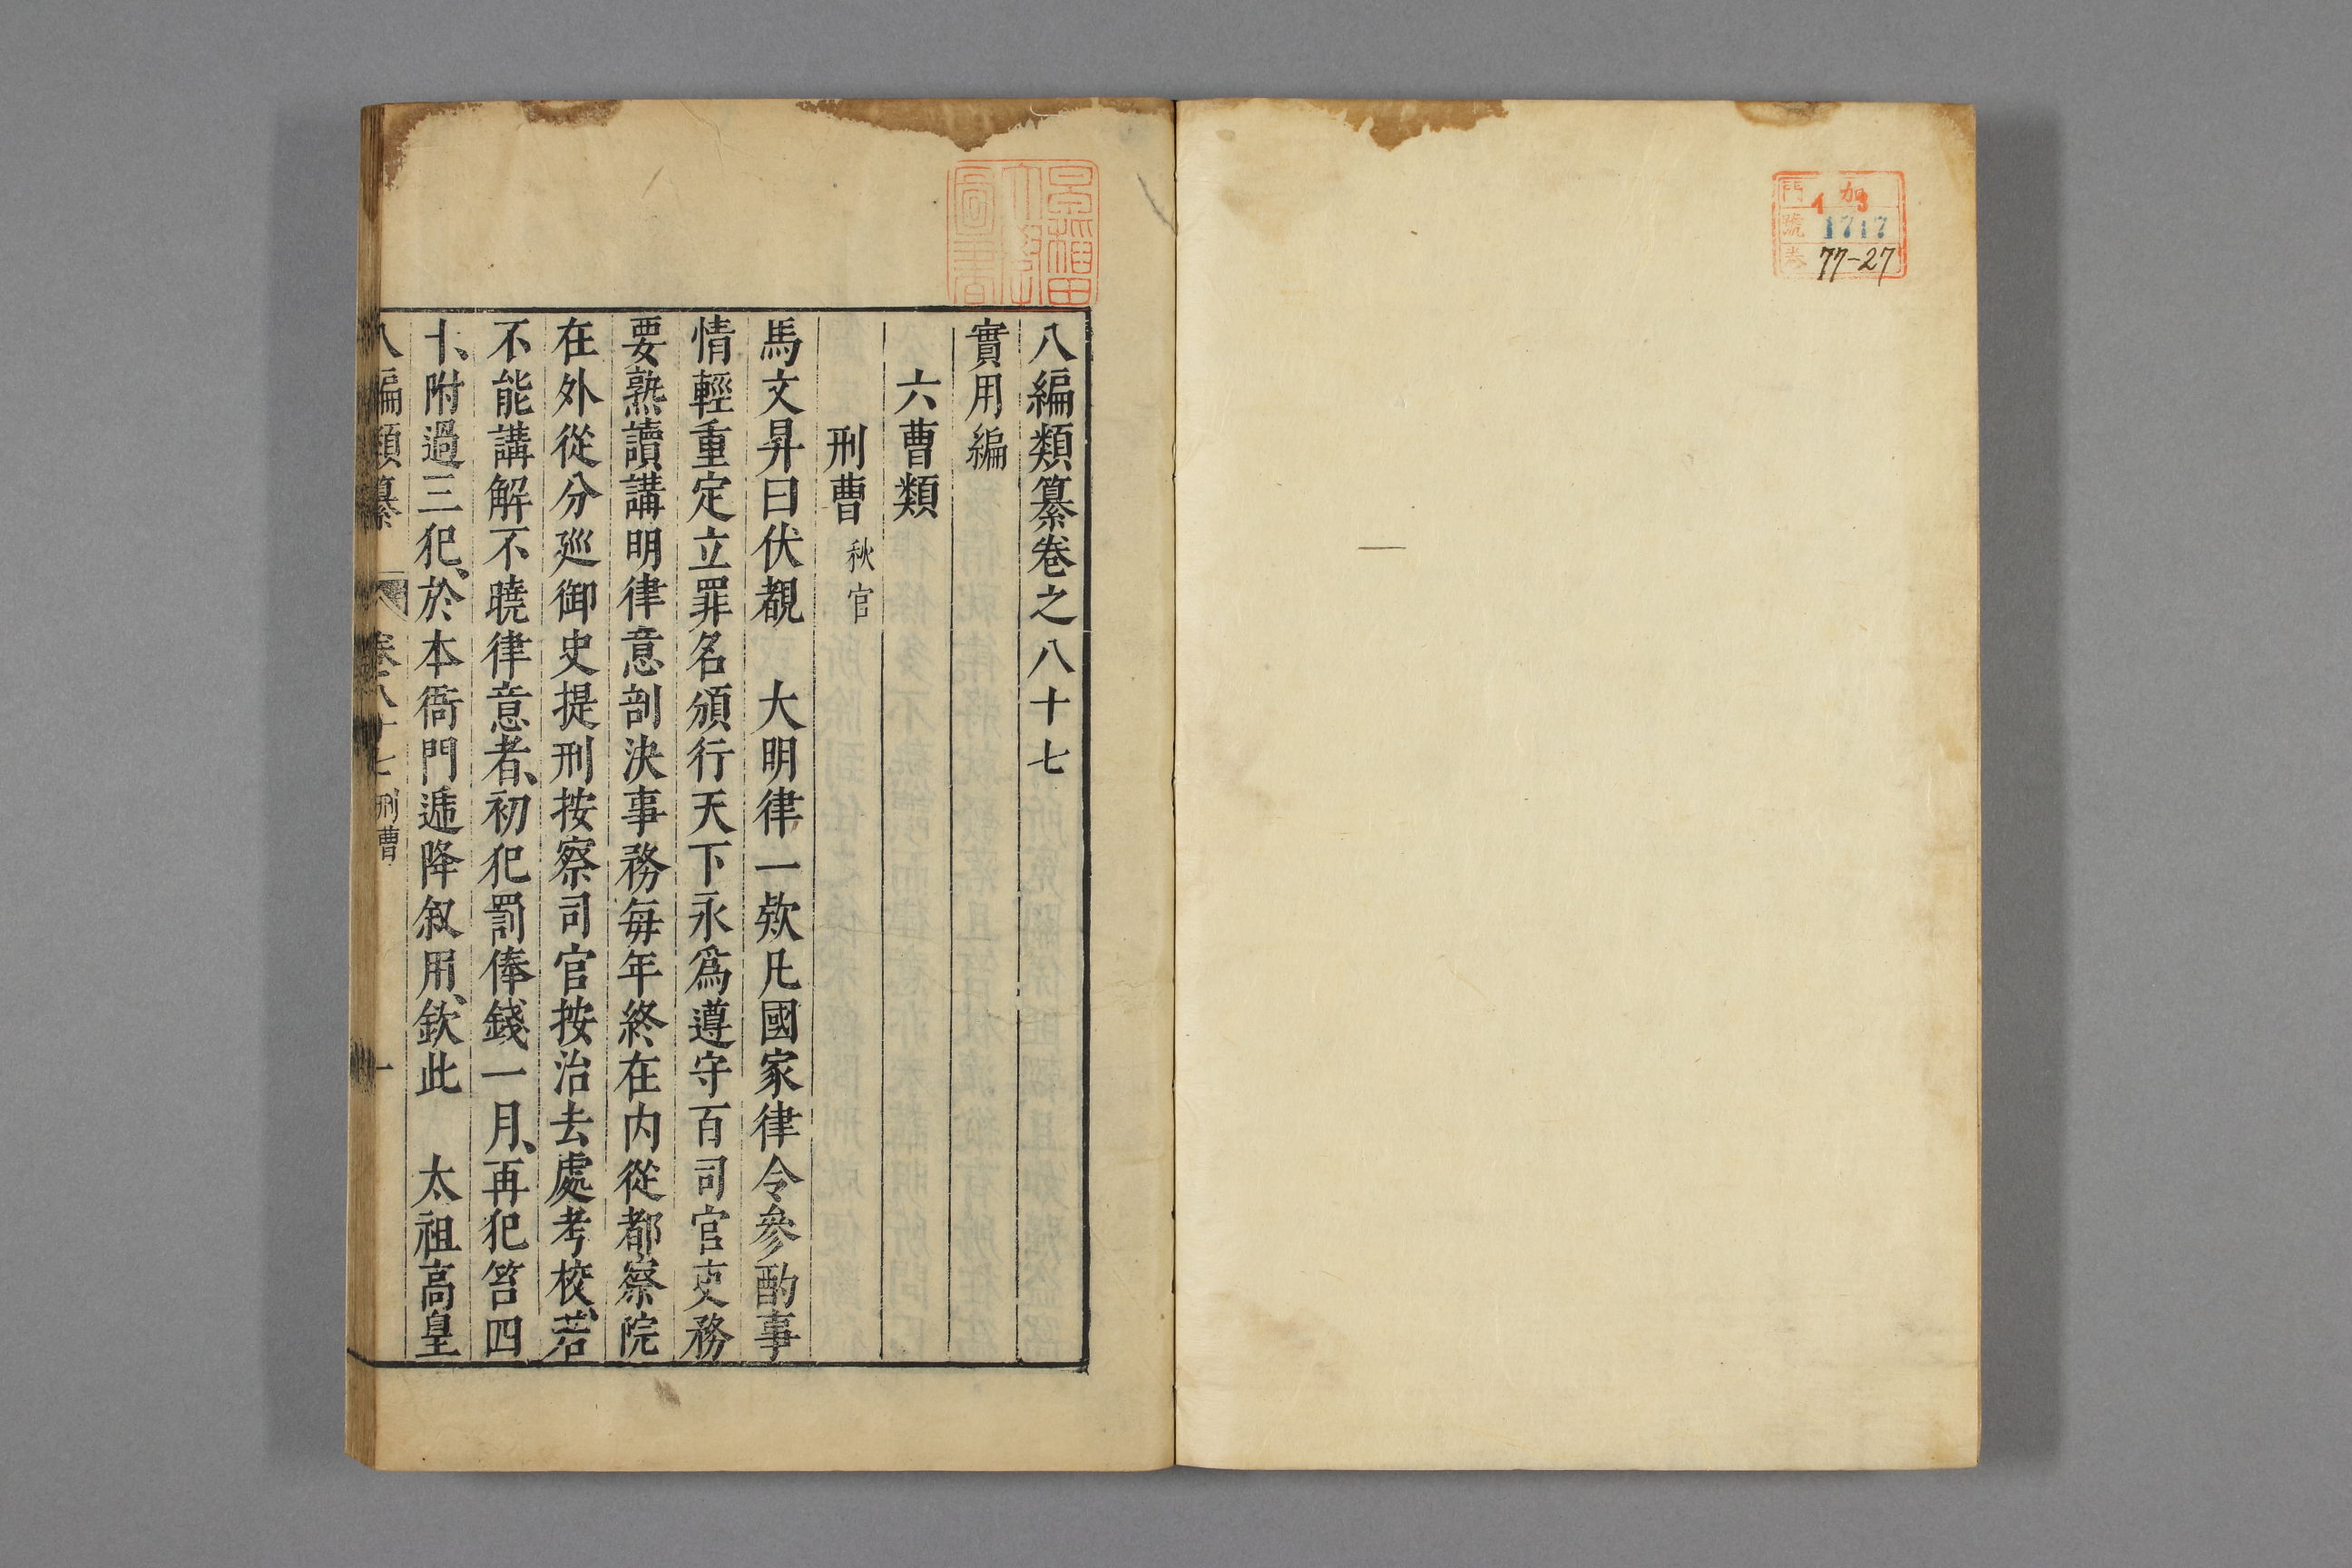 門 加
號 1717
卷 77-27
早稲田大學圖書
八編類纂卷之八十七
實用編
六曹類
刑曹 秋官
馬文昇曰伏覩 大明律一欵凡國家律令參酌事
情輕重定立罪名頒行天下永爲遵守百司官吏務
要熟讀講明律意剖決事務每年終在内從都察院
在外從分廵御史提刑按察司官按治去處考校、若
不能講解不曉律意者、初犯罰俸錢一月、再犯笞四
十、附過三犯、於本衙門遞降叙用、欽此 太祖高皇
八編類纂 卷八十七 刑曹 一